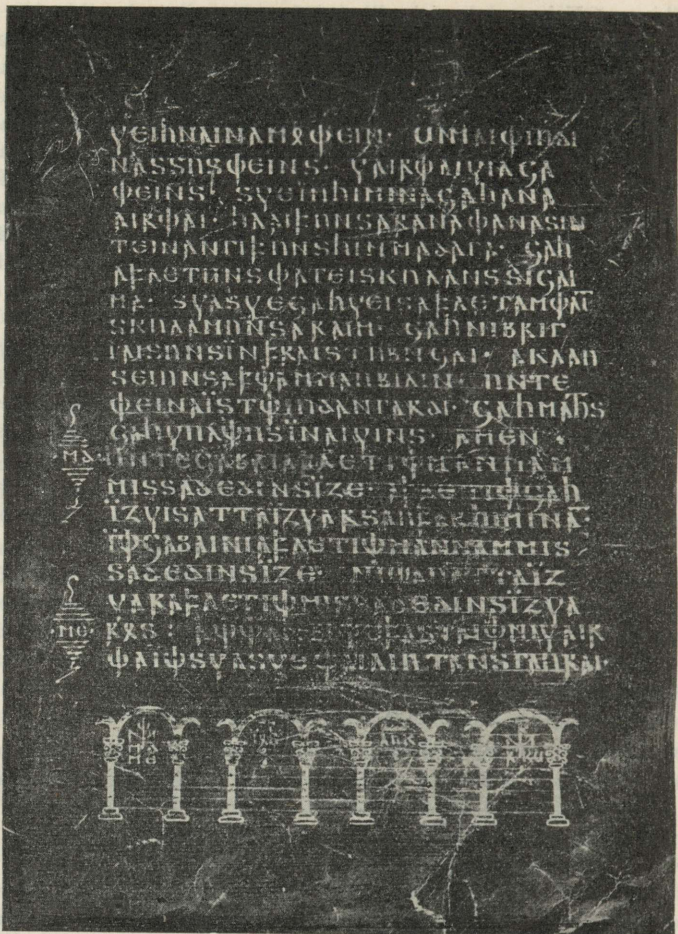 𐍅𐌴𐌹𐌷𐌽𐌰𐌹𐌽𐌰𐌼𐍉𐌸𐌴𐌹𐌽· 𐌵𐌹𐌼𐌰𐌹𐌸𐌹𐌿𐌳𐌹
𐌽𐌰𐍃𐍃𐌿𐍃𐌸𐌴𐌹𐌽𐍃· 𐍅𐌰𐌹𐍂𐌸𐌰𐌹𐍅𐌹𐌻𐌾𐌰
𐌸𐌴𐌹𐌽𐍃· 𐍃𐍅𐌴𐌹̈𐌽𐌷𐌹𐌼𐌹𐌽𐌰𐌾𐌰𐌷𐌰𐌽𐌰
𐌰𐌹𐍂𐌸𐌰𐌹· 𐌷𐌻𐌰𐌹𐍆𐌿𐌽𐍃𐌰𐍂𐌰𐌽𐌰𐌸𐌰𐌽𐌰𐍃𐌹𐌽
𐍄𐌴𐌹𐌽𐌰𐌽𐌲𐌹𐍆𐌿𐌽𐍃𐌷𐌹𐌼𐌼𐌰𐌳𐌰𐌲𐌰· 𐌾𐌰𐌷
𐌰𐍆𐌻𐌴𐍄𐌿𐌽𐍃𐌸𐌰𐍄𐌴𐌹𐍃𐌺𐌿𐌻𐌰𐌽𐍃𐍃𐌹𐌾𐌰𐌹
𐌼𐌰· 𐍃𐍅𐌰𐍃𐍅𐌴𐌾𐌰𐌷𐍅𐌴𐌹𐍃𐌰𐍆𐌻𐌴𐍄𐌰𐌼𐌸𐌰𐌹̅
𐍃𐌺𐌿𐌻𐌰𐌼𐌿𐌽𐍃𐌰𐍂𐌰𐌹𐌼· 𐌾𐌰𐌷𐌽𐌹𐌱𐍂𐌹𐌲𐌲
𐌰𐌹𐍃𐌿𐌽𐍃𐌹̈𐌽𐍆𐍂𐌰𐌹𐍃𐍄𐌿𐌱𐌽𐌾𐌰𐌹· 𐌰𐌺𐌻𐌰𐌿
𐍃𐌴𐌹𐌿𐌽𐍃𐌰𐍆𐌸𐌰𐌼𐌼𐌰𐌿𐌱𐌹𐌻𐌹𐌽· 𐌿𐌽𐍄𐌴
𐌸𐌴𐌹𐌽𐌰𐌹̈𐍃𐍄𐌸𐌹𐌿𐌳𐌰𐌽𐌲𐌰𐍂𐌳𐌹· 𐌾𐌰𐌷𐌼𐌰𐌷𐍄𐍃
𐌾𐌰𐌷𐍅𐌿𐌻𐌸𐌿𐍃𐌹̈𐌽𐌰𐌹𐍅𐌹𐌽𐍃· 𐌰𐌼𐌴𐌽·
·𐌼𐌳· 𐌿𐌽𐍄𐌴𐌾𐌰𐌱𐌰𐌹𐌰𐍆𐌻𐌴𐍄𐌹𐌸𐌼𐌰𐌽𐌽𐌰𐌼
𐌼𐌹𐍃𐍃𐌰𐌳𐌴𐌳𐌹𐌽𐍃𐌹̈𐌶𐌴· 𐌰𐍆𐌻𐌴𐍄𐌹𐌸𐌾𐌰𐌷
𐌹̈𐌶𐍅𐌹𐍃𐌰𐍄𐍄𐌰𐌹̈𐌶𐍅𐌰𐍂𐍃𐌰𐌿𐍆𐌰𐍂𐌷𐌹𐌼𐌹𐌽𐌰̅·
𐌹̈𐌸𐌾𐌰𐌱𐌰𐌹𐌽𐌹𐌰𐍆𐌻𐌴𐍄𐌹𐌸𐌼𐌰𐌽𐌽𐌰𐌼𐌼𐌹𐍃
𐍃𐌰𐌳𐌴𐌳𐌹𐌽𐍃𐌹̈𐌶𐌴· 𐌽𐌹𐌸𐌰𐌿𐌰𐍄𐍄𐌰𐌹̈𐌶
𐍅𐌰𐍂𐌰𐍆𐌻𐌴𐍄𐌹𐌸𐌼𐌹𐍃𐍃𐌰𐌳𐌴𐌳𐌹𐌽𐍃𐌹̈𐌶𐍅𐌰
·𐌼𐌴· 𐍂𐍉𐍃: 𐌰𐌸𐌸𐌰𐌽𐌱𐌹𐌸𐌴𐍆𐌰𐍃𐍄𐌰𐌹𐌸𐌽𐌹𐍅𐌰𐌹𐍂
𐌸𐌰𐌹𐌸𐍃𐍅𐌰𐍃𐍅𐌴𐌸𐌰𐌹𐌻𐌹𐌿𐍄𐌰𐌽𐍃𐌲𐌰𐌿𐍂𐌰𐌹·